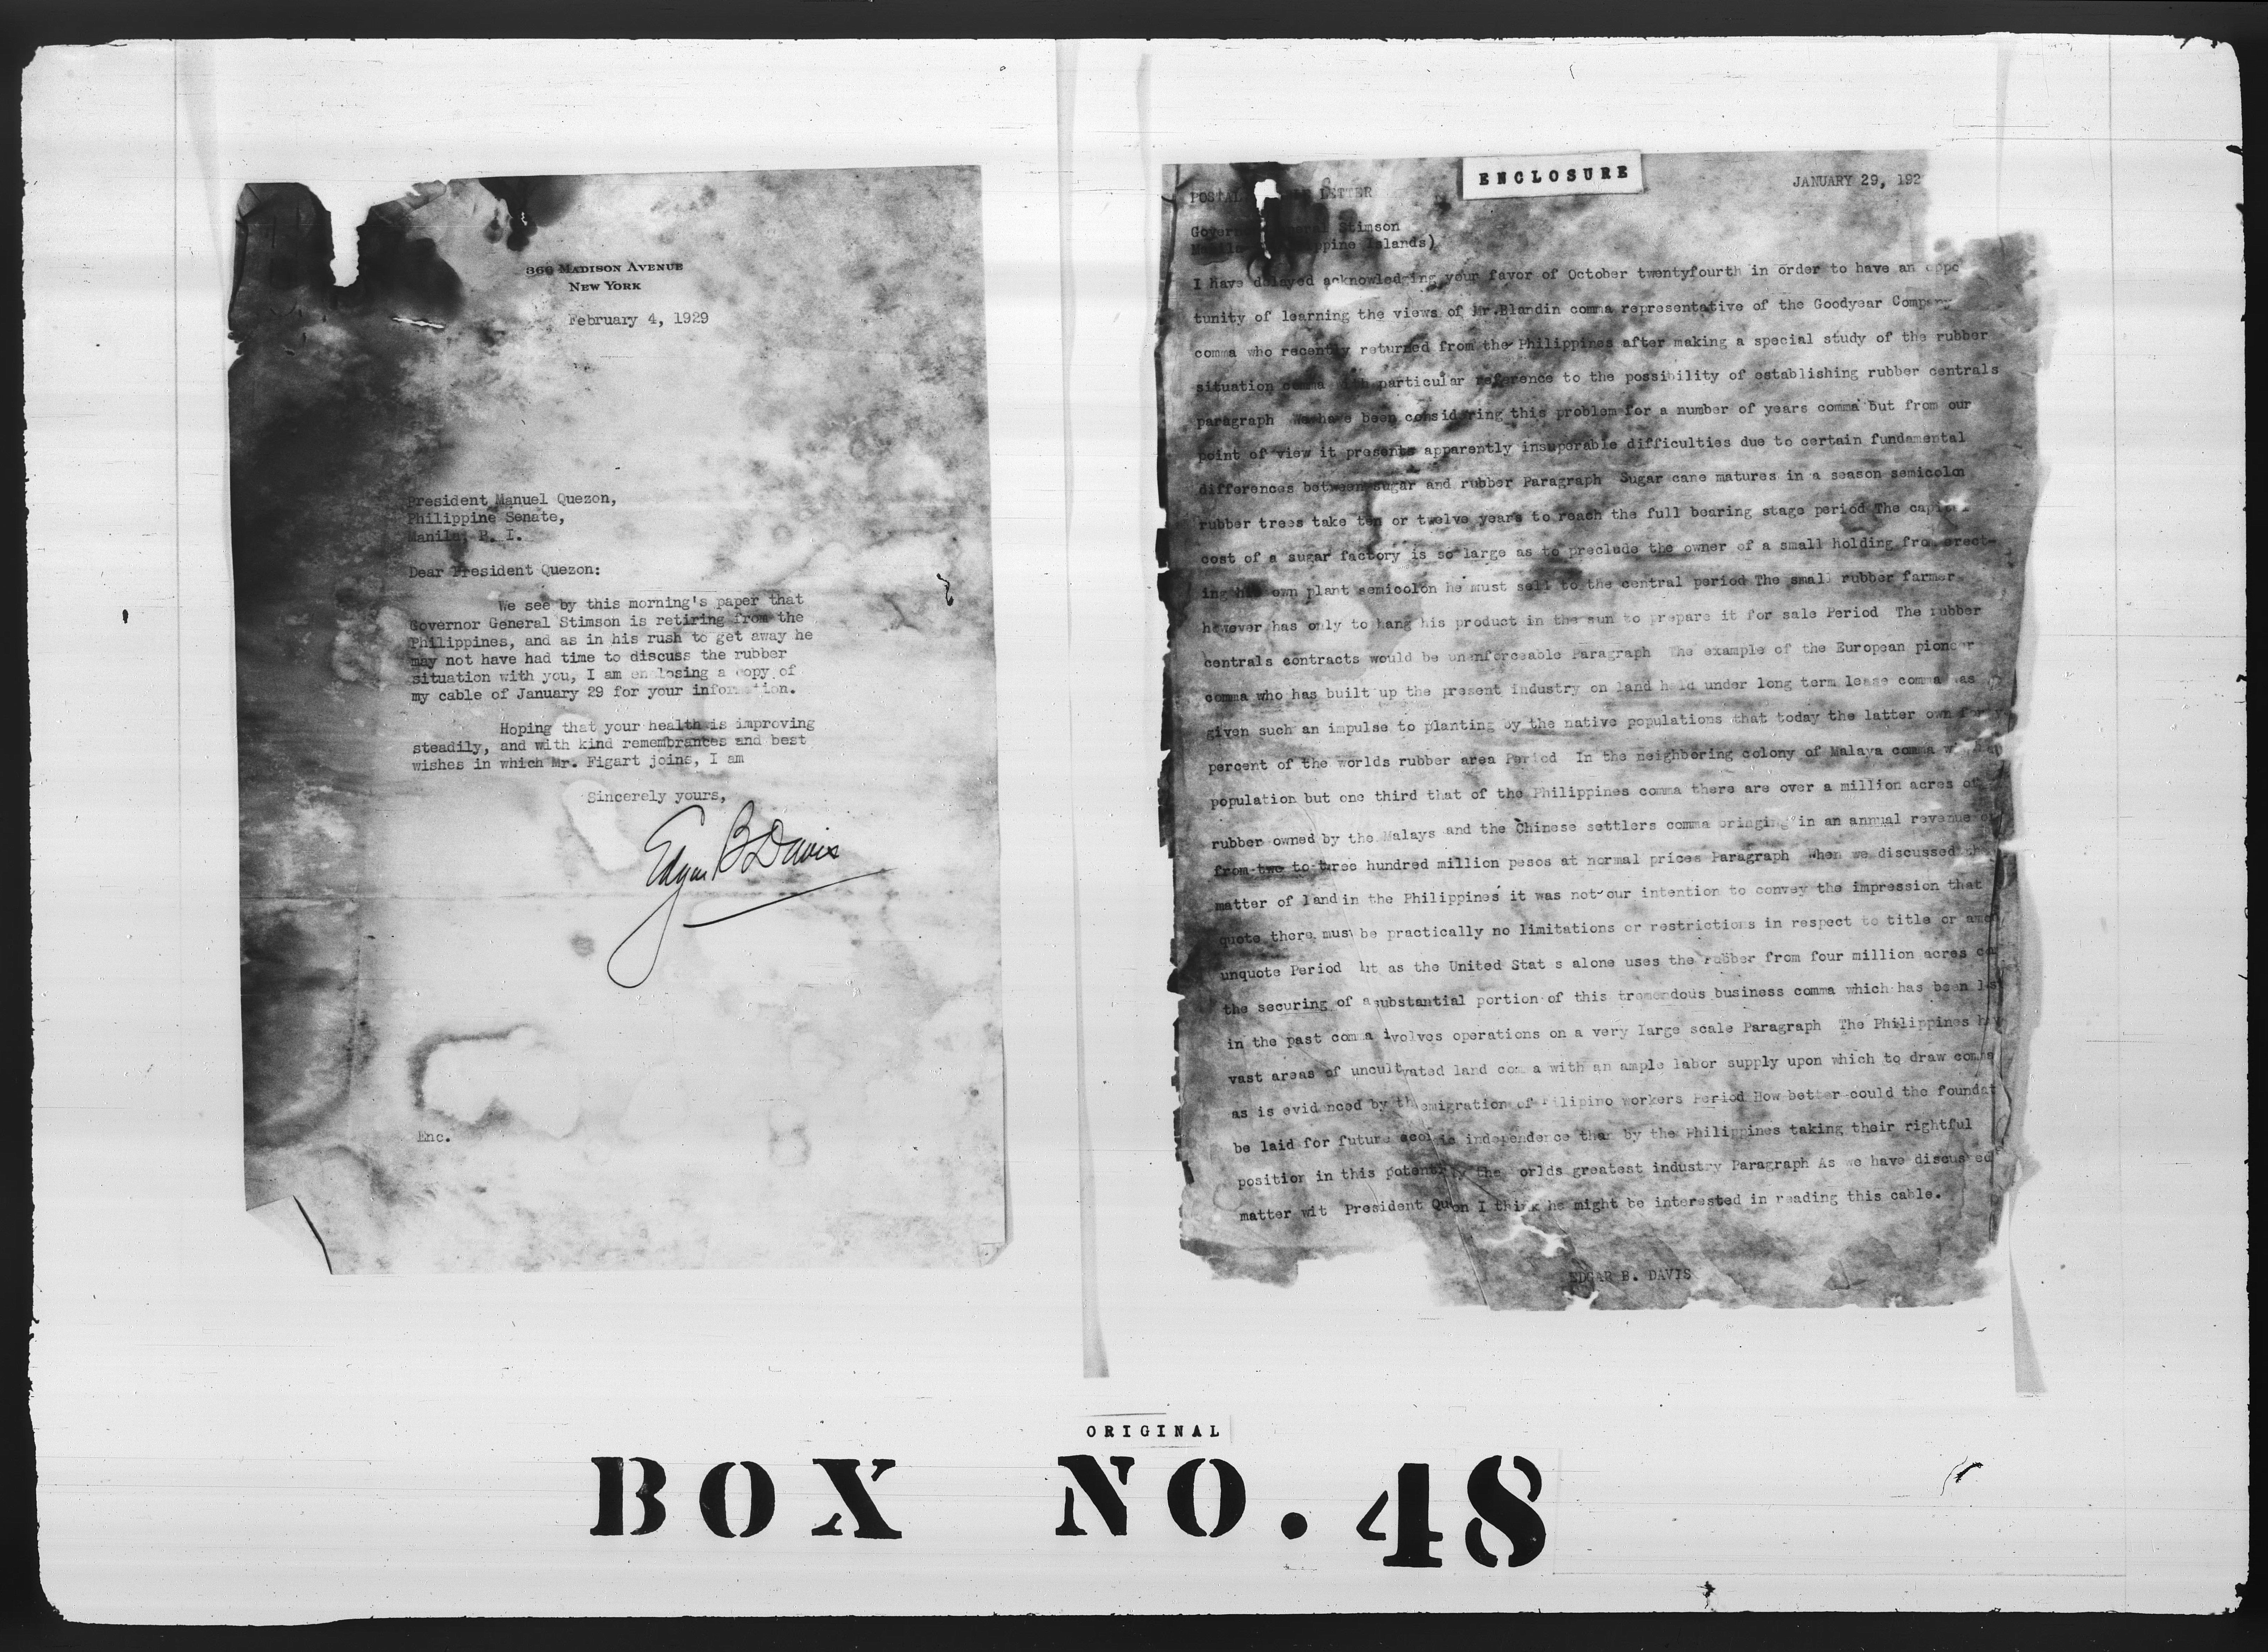 360 MADISON AVENUE
NEW YORK
February 4, 1929
President Manuel Quezon,
Philippine Senate,
Manila, P. I.
Dear President Quezon:
We see by this morning's paper that
Governor General Stimson is retiring from the
Philippines, and as in his rush to get away he
may not have had time to discuss the rubber
situation with you, I am enclosing a copy of
my cable of January 29 for your information.
Hoping that your health is improving
steadily, and with kind remembrances and best
wishes in which Mr. Figart joins, I am
Sincerely yours,
Edgar B Davis
Enc.
ENCLOSURE
JANUARY 29, 192
POSTAL LETTER
Governor General Stimson
Manila (Philippine Islands)
I have delayed acknowledging your favor of October twentyfourth in order to have an oppo
tunity of learning the views of Mr.Blandin comma representative of the Goodyear Company
comma who recently returned from the Philippines after making a special study of the rubber
situation comma with particular reference to the possibility of establishing rubber centrals
paragraph We have been considering this problem for a number of years comma but from our
point of view it presents apparently insuperable difficulties due to certain fundamental
differences between sugar and rubber Paragraph Sugar cane matures in a season semicolon
rubber trees take ten or twelve years to reach the full bearing stage period The capital
cost of a sugar factory is so large as to preclude the owner of a small holding from erect-
ing his own plant semicolon he must sell to the central period The small rubber farmer
however has only to hang his product in the sun to prepare it for sale Period The rubber
centrals contracts would be unenforceable Paragraph The example of the European pioneer
comma who has built up the present industry on land held under long term lease comma has
given such an impulse to planting by the native populations that today the latter own forty
percent of the worlds rubber area Period In the neighboring colony of Malaya comma with a
population but one third that of the Philippines comma there are over a million acres of
rubber owned by the Malays and the Chinese settlers comma bringing in an annual revenue of
from two to three hundred million pesos at normal prices Paragraph When we discussed the
matter of land in the Philippines it was not our intention to convey the impression that
quote there must be practically no limitations or restrictions in respect to title or
unquote Period but as the United Stat s alone uses the rubber from four million acres
the securing of a substantial portion of this tremendous business comma which has been
in the past comma ivolves operations on a very large scale Paragraph The Philippines have
vast areas of uncultivated land comma with an ample labor supply upon which to draw comma
as is evidenced by the emigration of Filipino workers Period How better could the foundat
be laid for future independence than by the Philippines taking their rightful
position in this the worlds greatest industry Paragraph As we have discussed
matter wit President Quezon I think he might be interested in reading this cable.
EDGAR B. DAVIS
ORIGINAL
BOX NO. 48